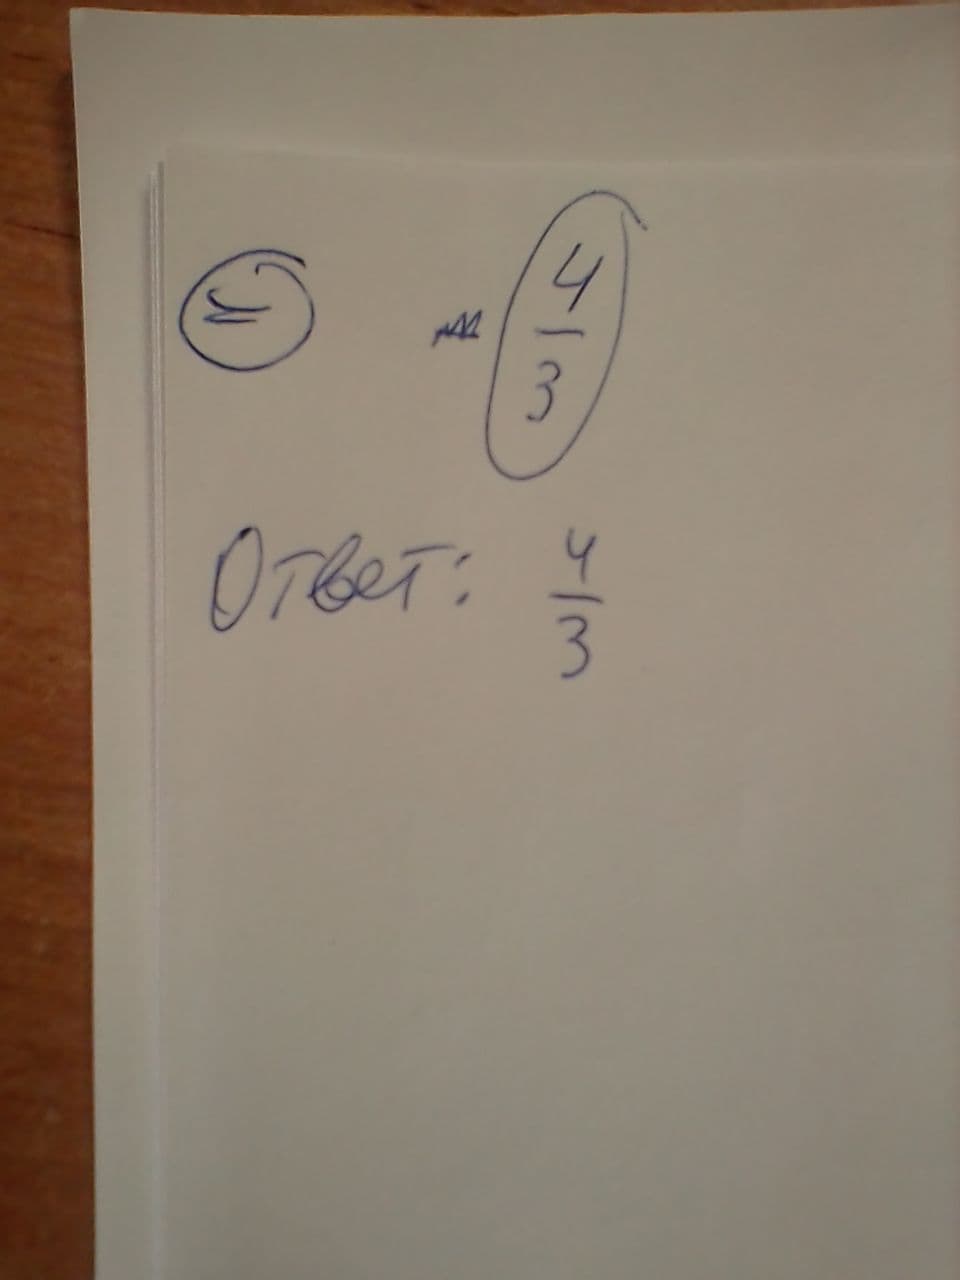 = 4/3
Ответ: 4/3